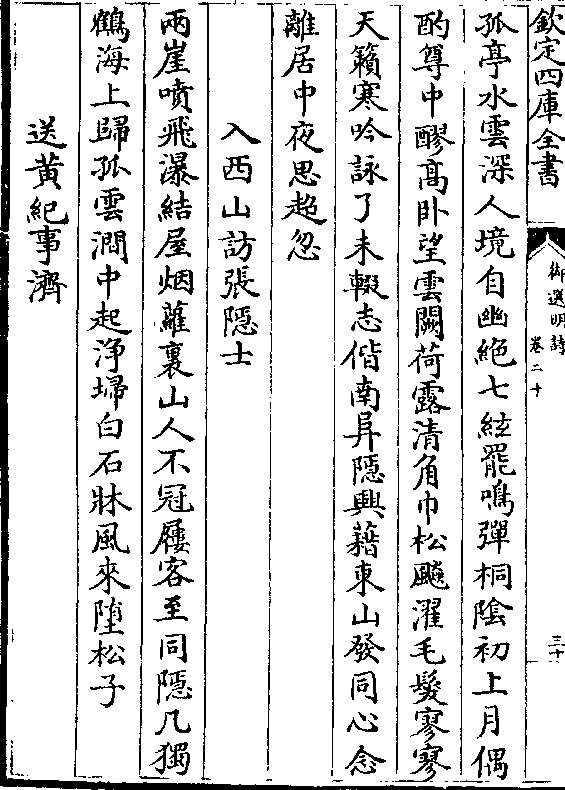 欽定四庫全書
御選明詩
卷二十
三十
孤亭水雲深人境自幽絶七絃罷鳴彈桐陰初上月偶
酌尊中醪高卧望雲闕荷露清角巾松飈濯毛髮寥寥
天籟寒吟詠了未輟志偕南屏隱興藉東山發同心念
離居中夜思超忽
入西山訪張隠士
兩崖噴飛瀑結屋烟蘿裏山人不冠屨客至同隠几獨
鶴海上歸孤雲澗中起浄埽白石牀風來墮松子
送黄紀事濟